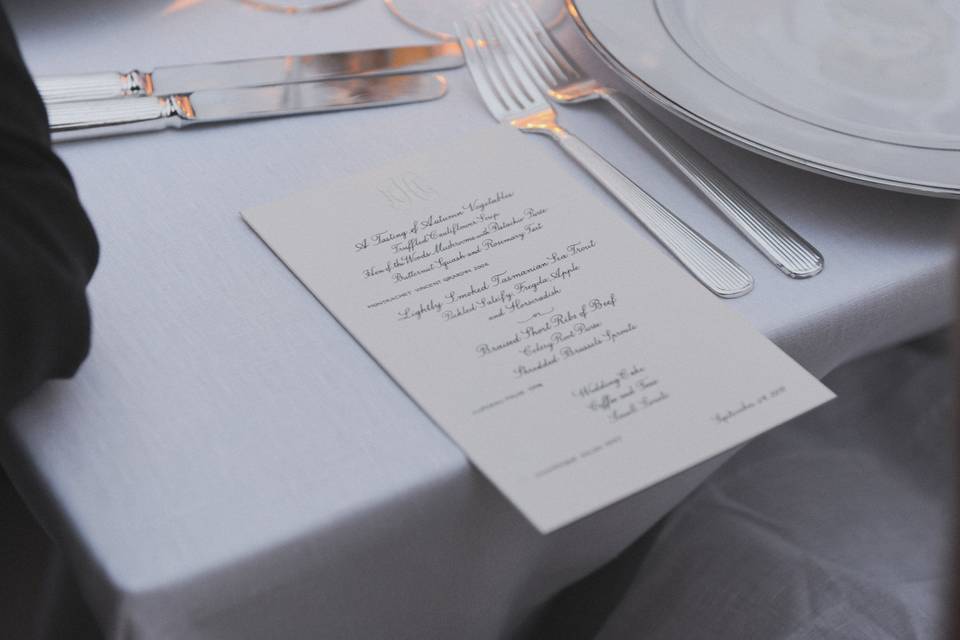 A Tasting of Autumn Vegetables
Truffled Cauliflower Soup
Hen of the Woods Mushrooms with Pistachio Puree
Butternut Squash and Rosemary Tart
MONTRACHET VINCENT GIRARDIN 2004
Lightly Smoked Tasmanian Sea Trout
Pickled Salsify, Fregola, Apple
and Horseradish
or
Braised Short Ribs of Beef
Celery Root Puree
Shredded Brussels Sprouts
Wedding Cake
Coffee and Teas
Small Sweets
September